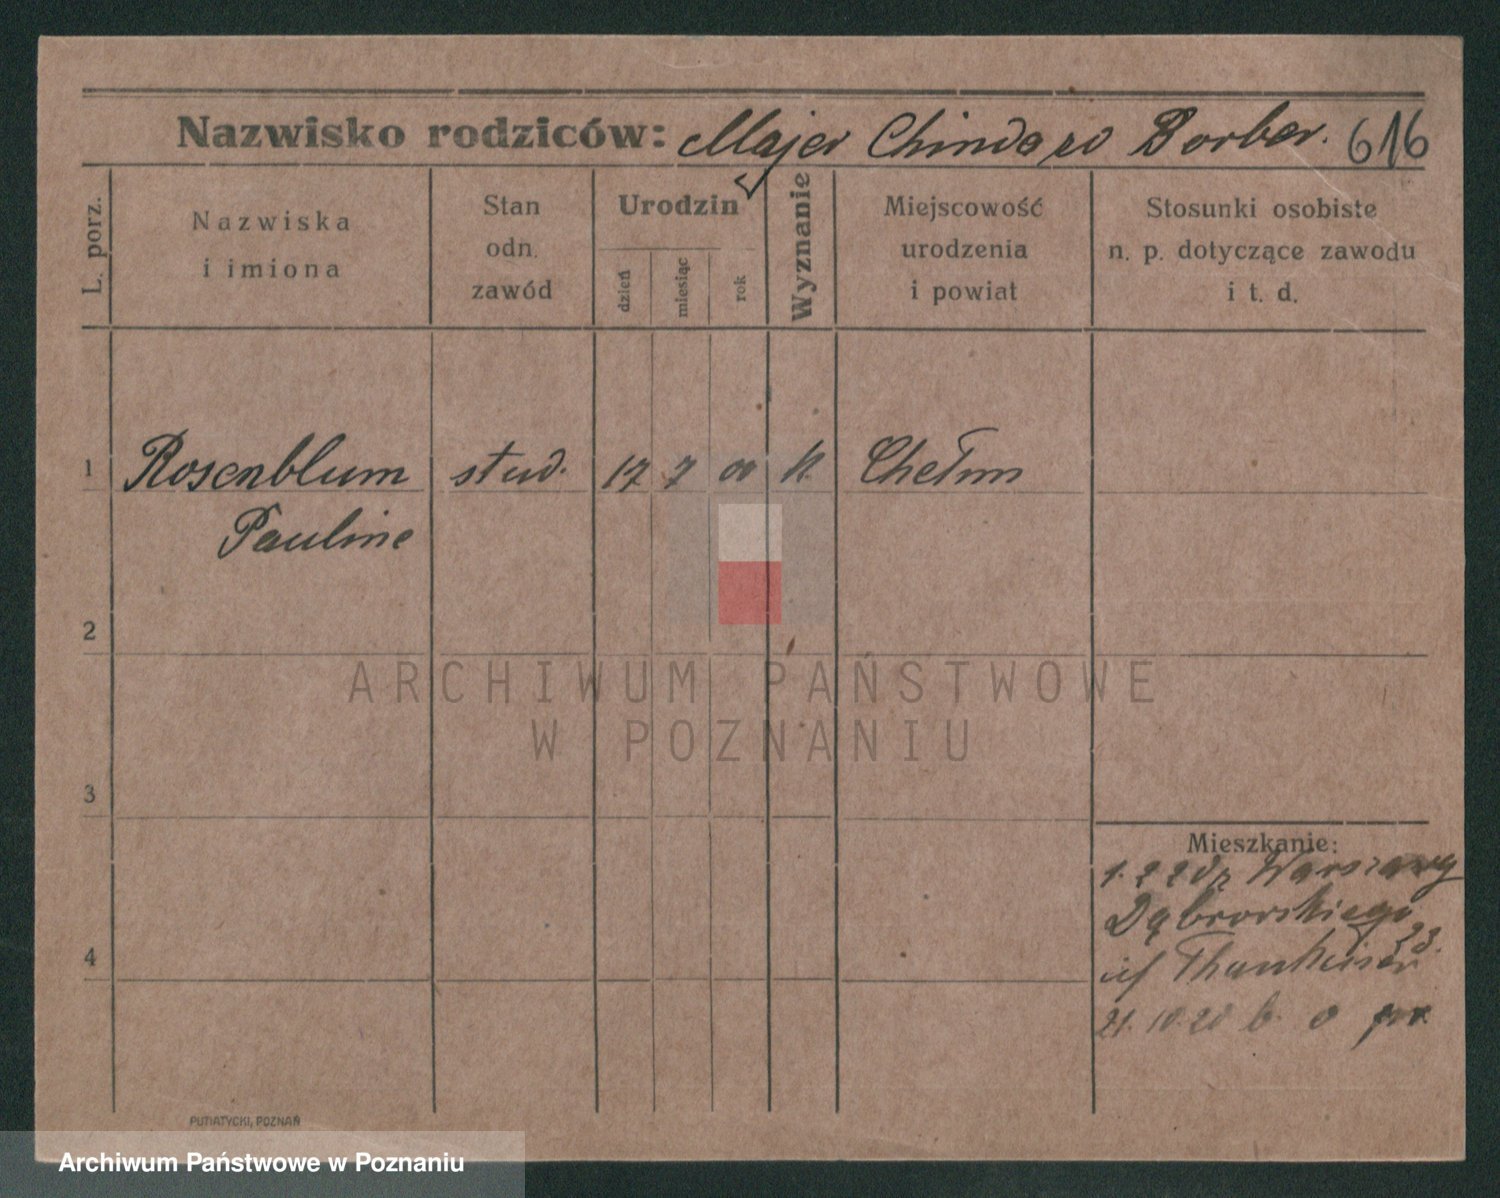 Nazwisko rodziców: Majer Chinda zd Borber. 616
L. porz.
Nazwiska
i imiona
Stan
odn.
zawód
Urodzin
dzień
miesiąc
rok
Wyznanie
Miejscowość
urodzenia
i powiat
Stosunki osobiste
n. p. dotyczące zawodu
i t. d.
1 Rosenblum stud. 17 7 00 Chełm
Pauline
2
3
4
Mieszkanie:
1. 2 20 z Warszawy
Dąbrowskiego
33.
21. 10. 20 b. o
ARCHIWUM PAŃSTWOWE
W POZNANIU
PUTIATYCKI, POZNAŃ
Archiwum Państwowe w Poznaniu